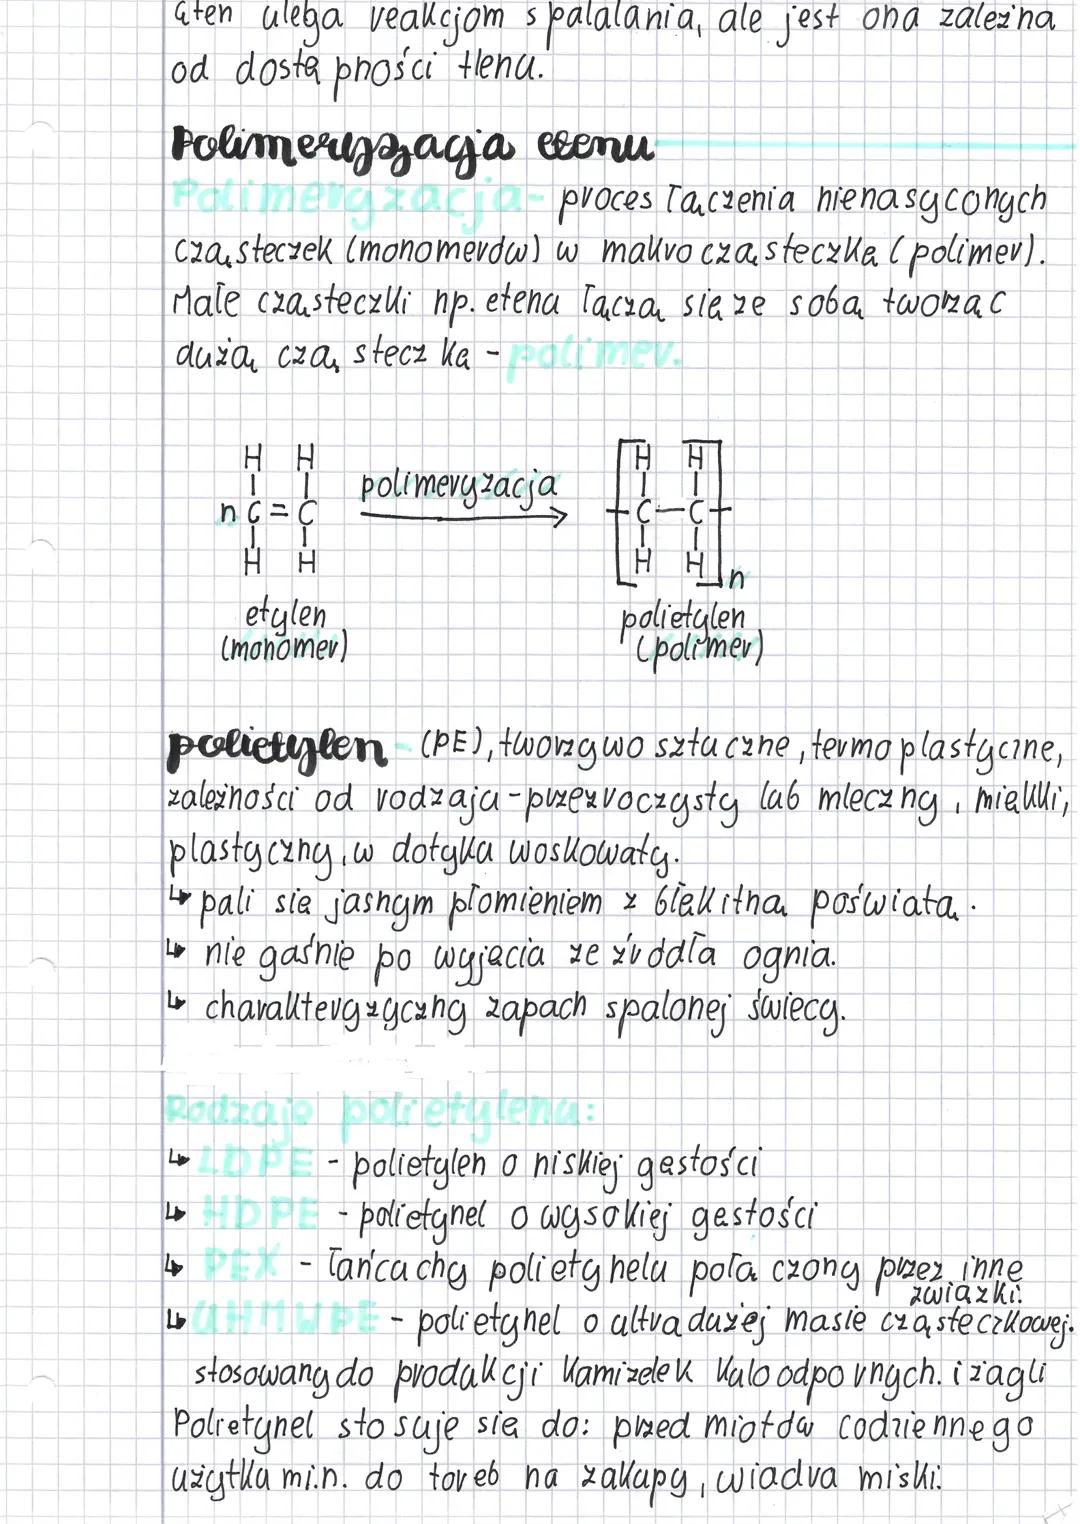 eten ulega reakcjom spalalania, ale jest ona zależna
od dostępności tlenu.
Polimeryzacja etenu
Polimeryzacja - proces łączenia nienasyconych
cząsteczek (monomerów) w makrocząsteczkę (polimer).
Małe cząsteczki np. etenu łączą się ze sobą tworząc
dużą cząsteczkę - polimer.
H H H H
polimeryzacja
n C = C C — C
H H H H n
etylen polietylen
(monomer) (polimer)
polietylen - (PE), tworzywo sztuczne, termoplastyczne,
zależności od rodzaju - przezroczysty lub mleczny, miękki,
plastyczny, w dotyku woskowaty.
↳ pali się jasnym płomieniem z błękitną poświatą.
↳ nie gaśnie po wyjęciu ze źróddła ognia.
↳ charakteryzyczny zapach spalonej świecy.
Rodzaje polietylenu:
↳ LDPE - polietylen o niskiej gęstości
↳ HDPE - polietynel o wysokiej gęstości
↳ PEX - łańcuchy polietynelu połączony przez inne
związki.
↳ UHMWPE - polietynel o ultra dużej masie cząsteczkowej.
stosowany do produkcji kamizelek kuloodpornych. i żagli
Polietynel stosuje się do: przedmiotów codziennego
użytku m.in. do toreb na zakupy, wiadra miski.